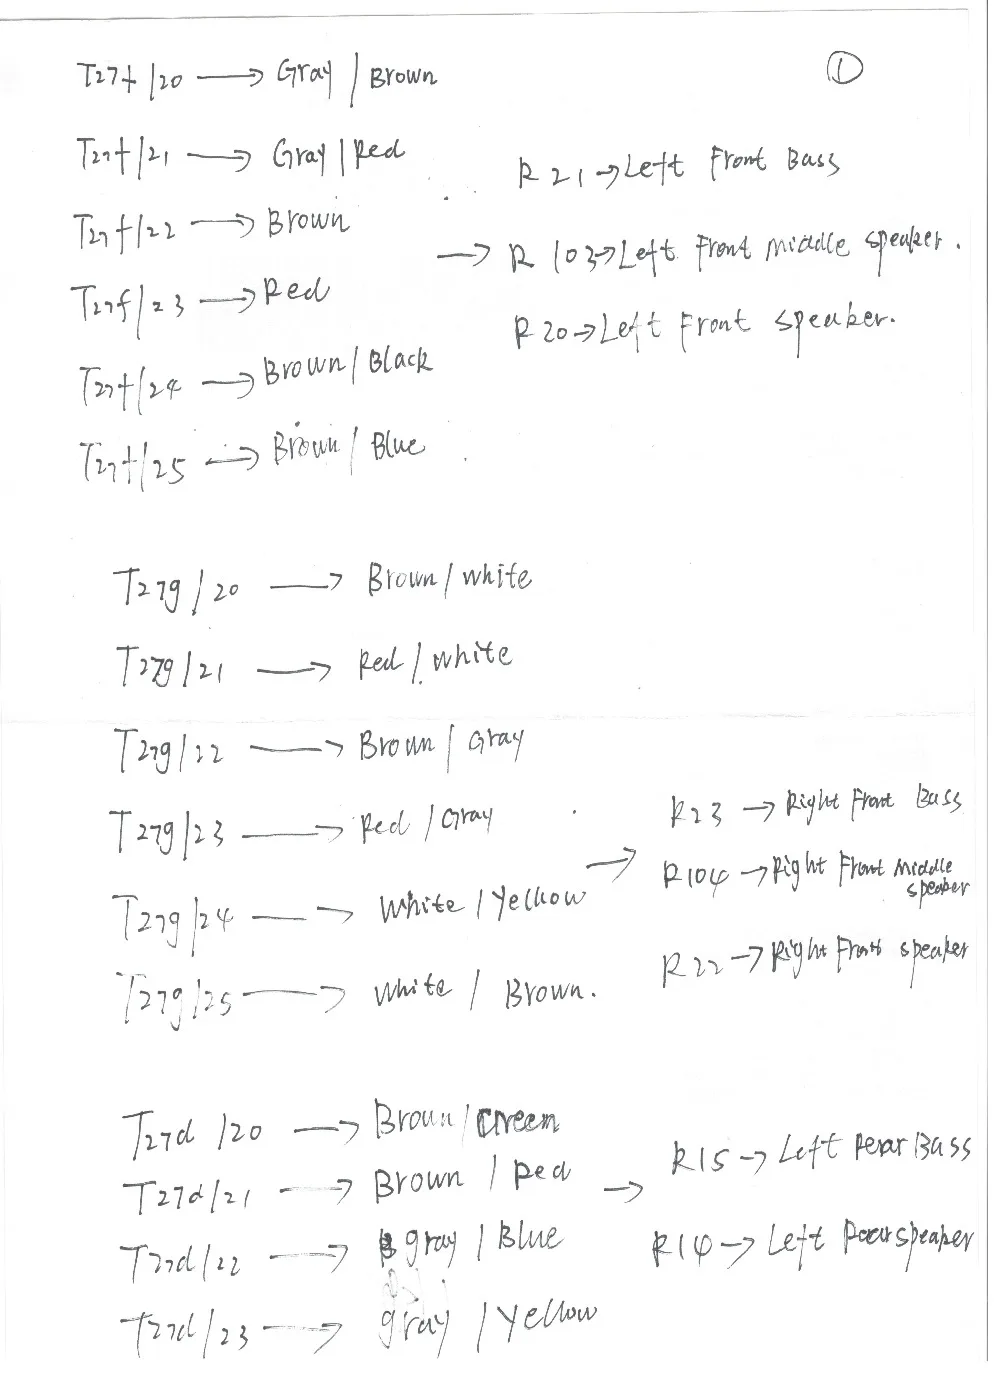 ①
T27f/20 → Gray / Brown
T27f/21 → Gray / Red
T27f/22 → Brown
T27f/23 → Red
T27f/24 → Brown / Black
T27f/25 → Brown / Blue
R 21 → Left Front Bass
→ R 103 → Left Front middle speaker.
R 20 → Left Front speaker.
T27g/20 → Brown / white
T27g/21 → Red / white
T27g/22 → Brown / Gray
T27g/23 → Red / Gray
T27g/24 → White / Yellow
T27g/25 → white / Brown.
R23 → Right Front Bass
→ R104 → Right Front Middle
speaker
R22 → Right Front speaker
T27d/20 → Brown / Green
T27d/21 → Brown / Red
T27d/22 → gray / Blue
T27d/23 → gray / Yellow
→ R15 → Left Rear Bass
R14 → Left Rear speaker